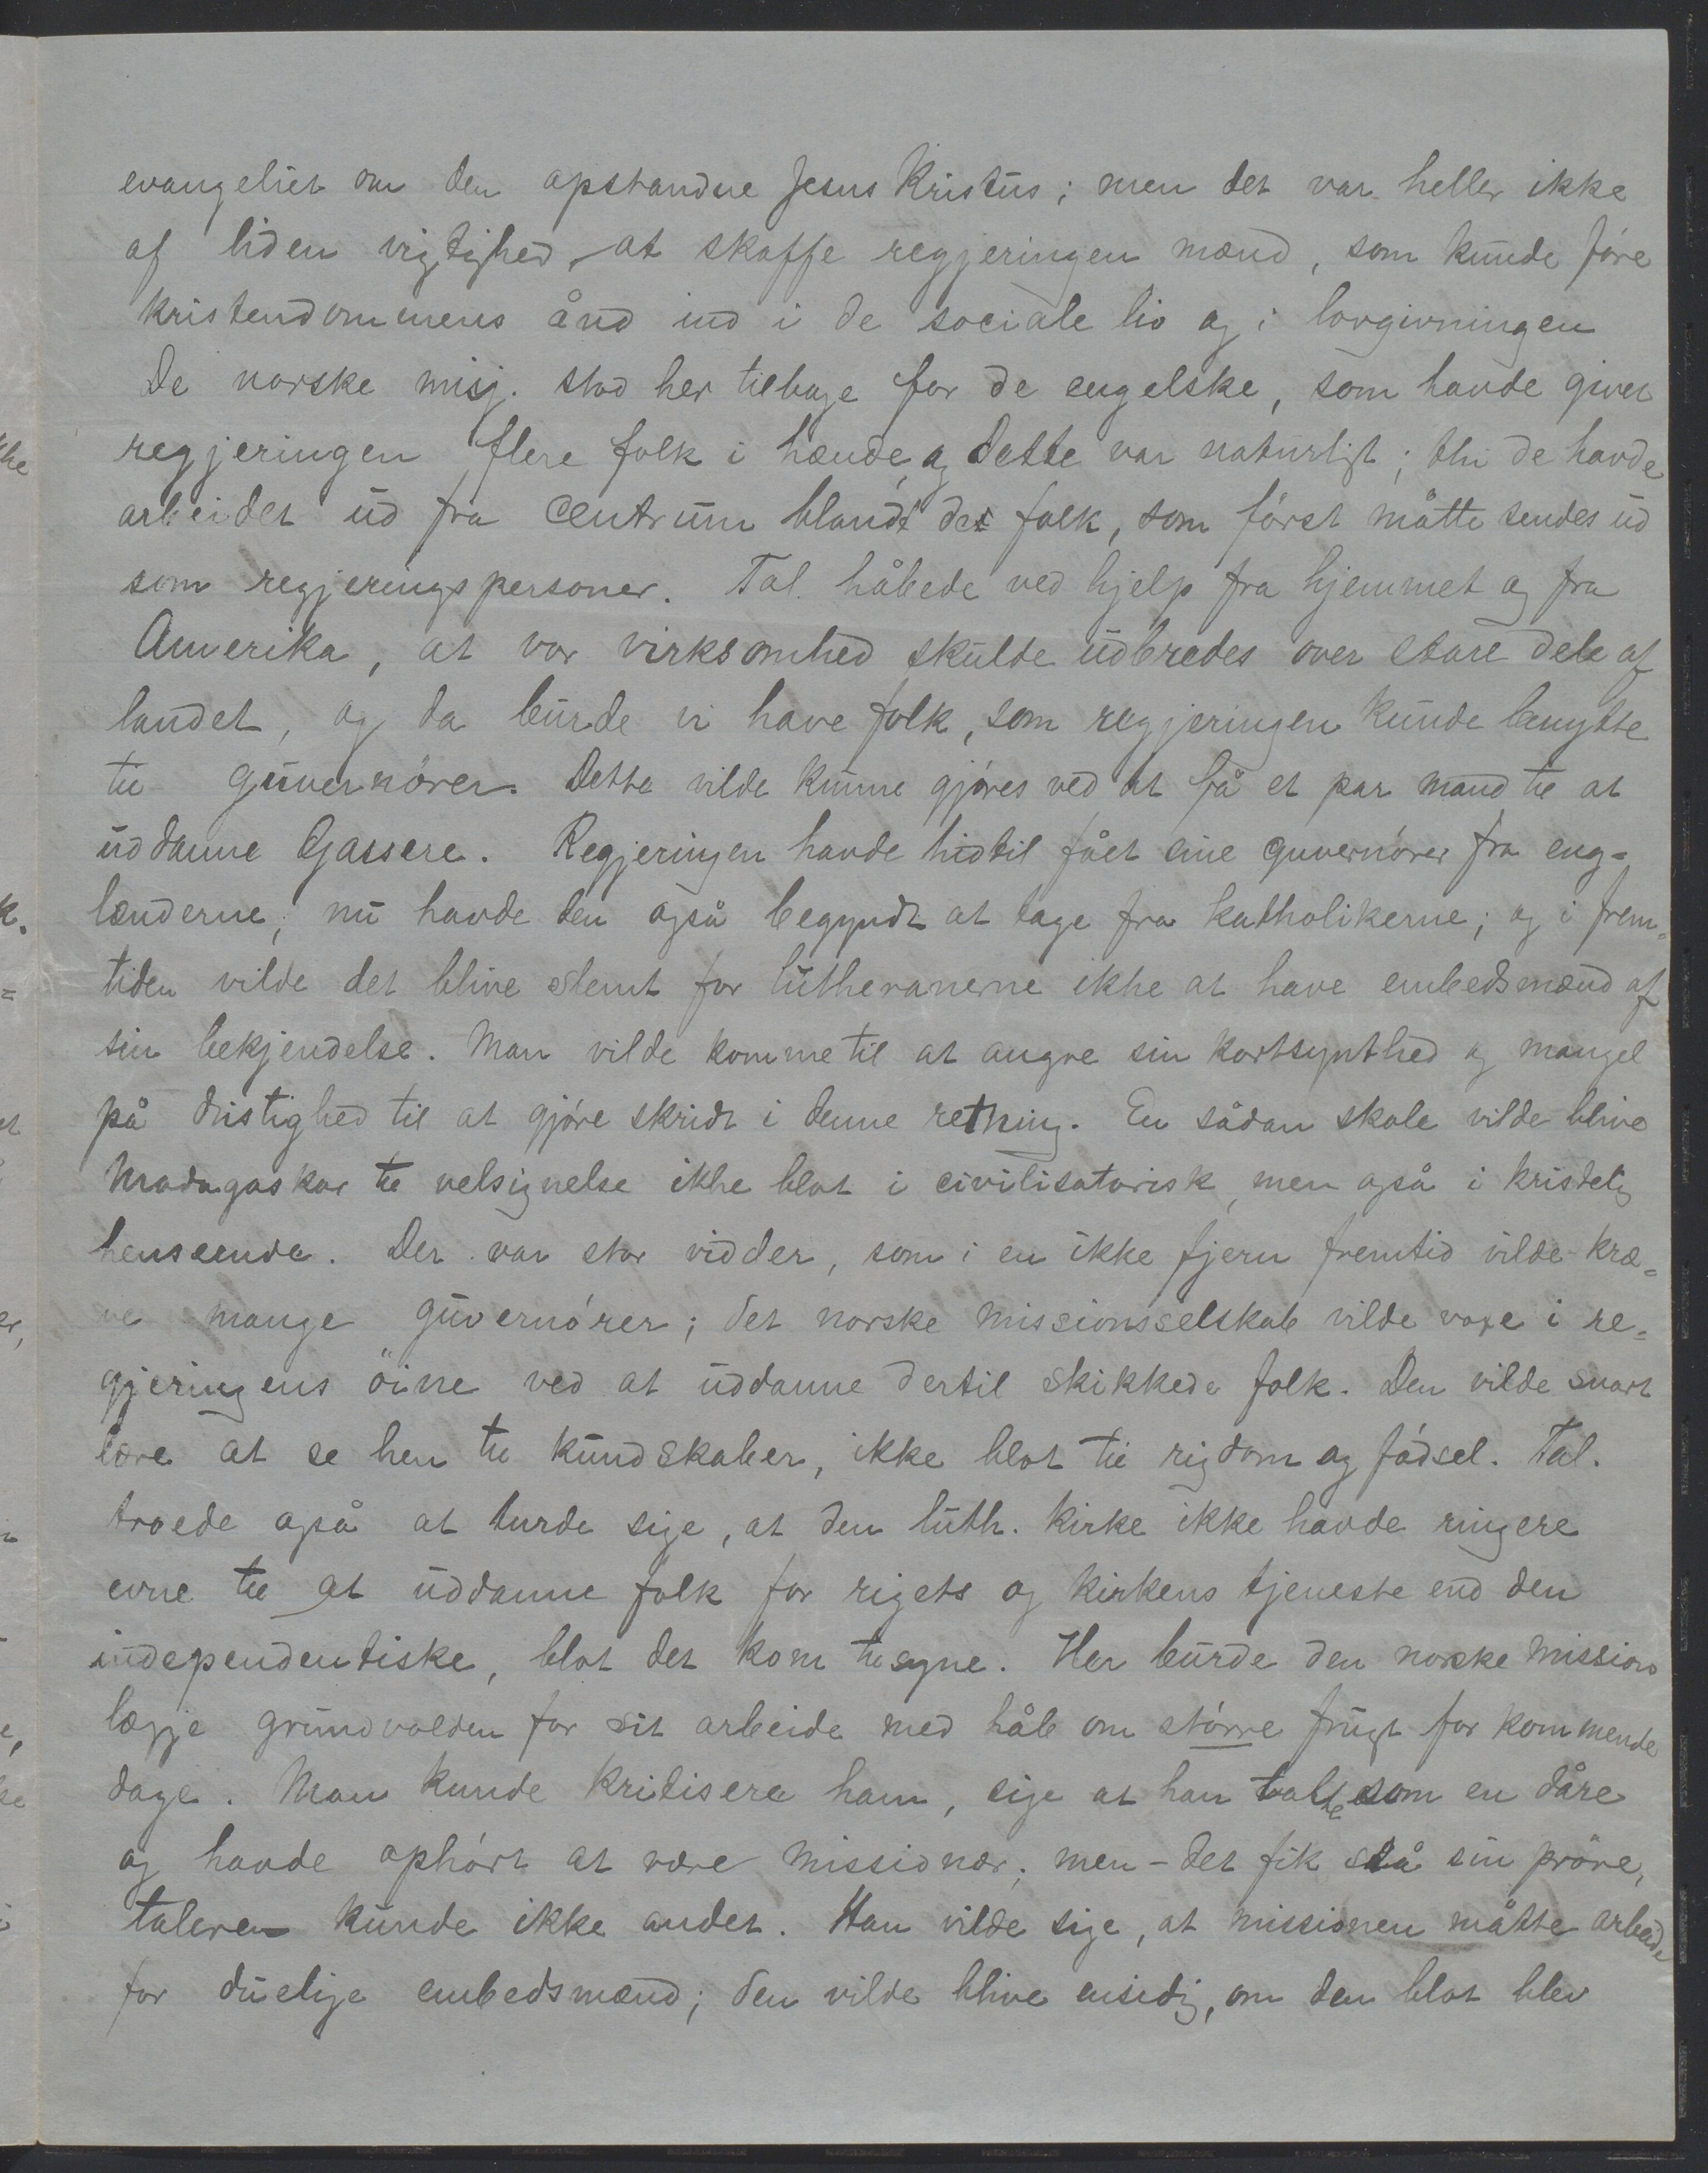 evangeliet om den opstandne Jesus Kristus; men det var heller ikke
af liden vigtighed, at skaffe regjeringen mænd, som kunde føre
kristendommens ånd ind i de sociale liv og i lovgivningen
De norske misj. stod her tilbage for de engelske, som havde givet
regjeringen flere folk i hænde, og dette var naturligt; thi de havde
arbeidet ud fra centrum blandt det folk, som først måtte sendes ud
som regjeringspersoner. Tal. håbede ved hjelp fra hjemmet og fra
Amerika, at vor virksomhed skulde udbredes over store dele af
landet, og da burde vi have folk, som regjeringen kunde benytte
til guvernører. Dette vilde kunne gjøres ved at få et par mand til at
uddanne Gassere. Regjeringen havde hidtil fået sine guvernører fra eng=
lænderne, nu havde den også begyndt at tage fra katholikerne; og i frem=
tiden vilde det blive slemt for lutheranerne ikke at have embedsmænd af
sin bekjendelse. Man vilde komme til at angre sin kortsynthed og mangel
på dristighed til at gjøre skridt i denne retning. En sådan skole vilde blive
Madagaskar til velsignelse ikke blot i civilisatorisk, men også i kristelig
henseende. Der var stor vidder, som i en ikke fjern fremtid vilde kræ=
ve mange guvernører; det norske missionsselskab vilde voxe i re=
gjeringens öine ved at uddanne dertil skikkede folk. Den vilde snart
lære at se hen til kundskaber, ikke blot til rigdom og fødsel. Tal.
troede også at turde sige, at den luth. kirke ikke havde ringere
evne til at uddanne folk for rigets og kirkens tjeneste end den
independentiske, blot det kom tilsyne. Her burde den norske mission
lægge grundvolden for sit arbeide med håb om større frugt for kommende
dage. Man kunde kritisere ham, sige at han talte som en dåre
og havde ophørt at være missionær; men - det fik stå sin prøve,
taleren kunde ikke andet. Han vilde sige, at missionen måtte arbeide
for duelige embedsmænd; den vilde blive ensidig, om den blot blev